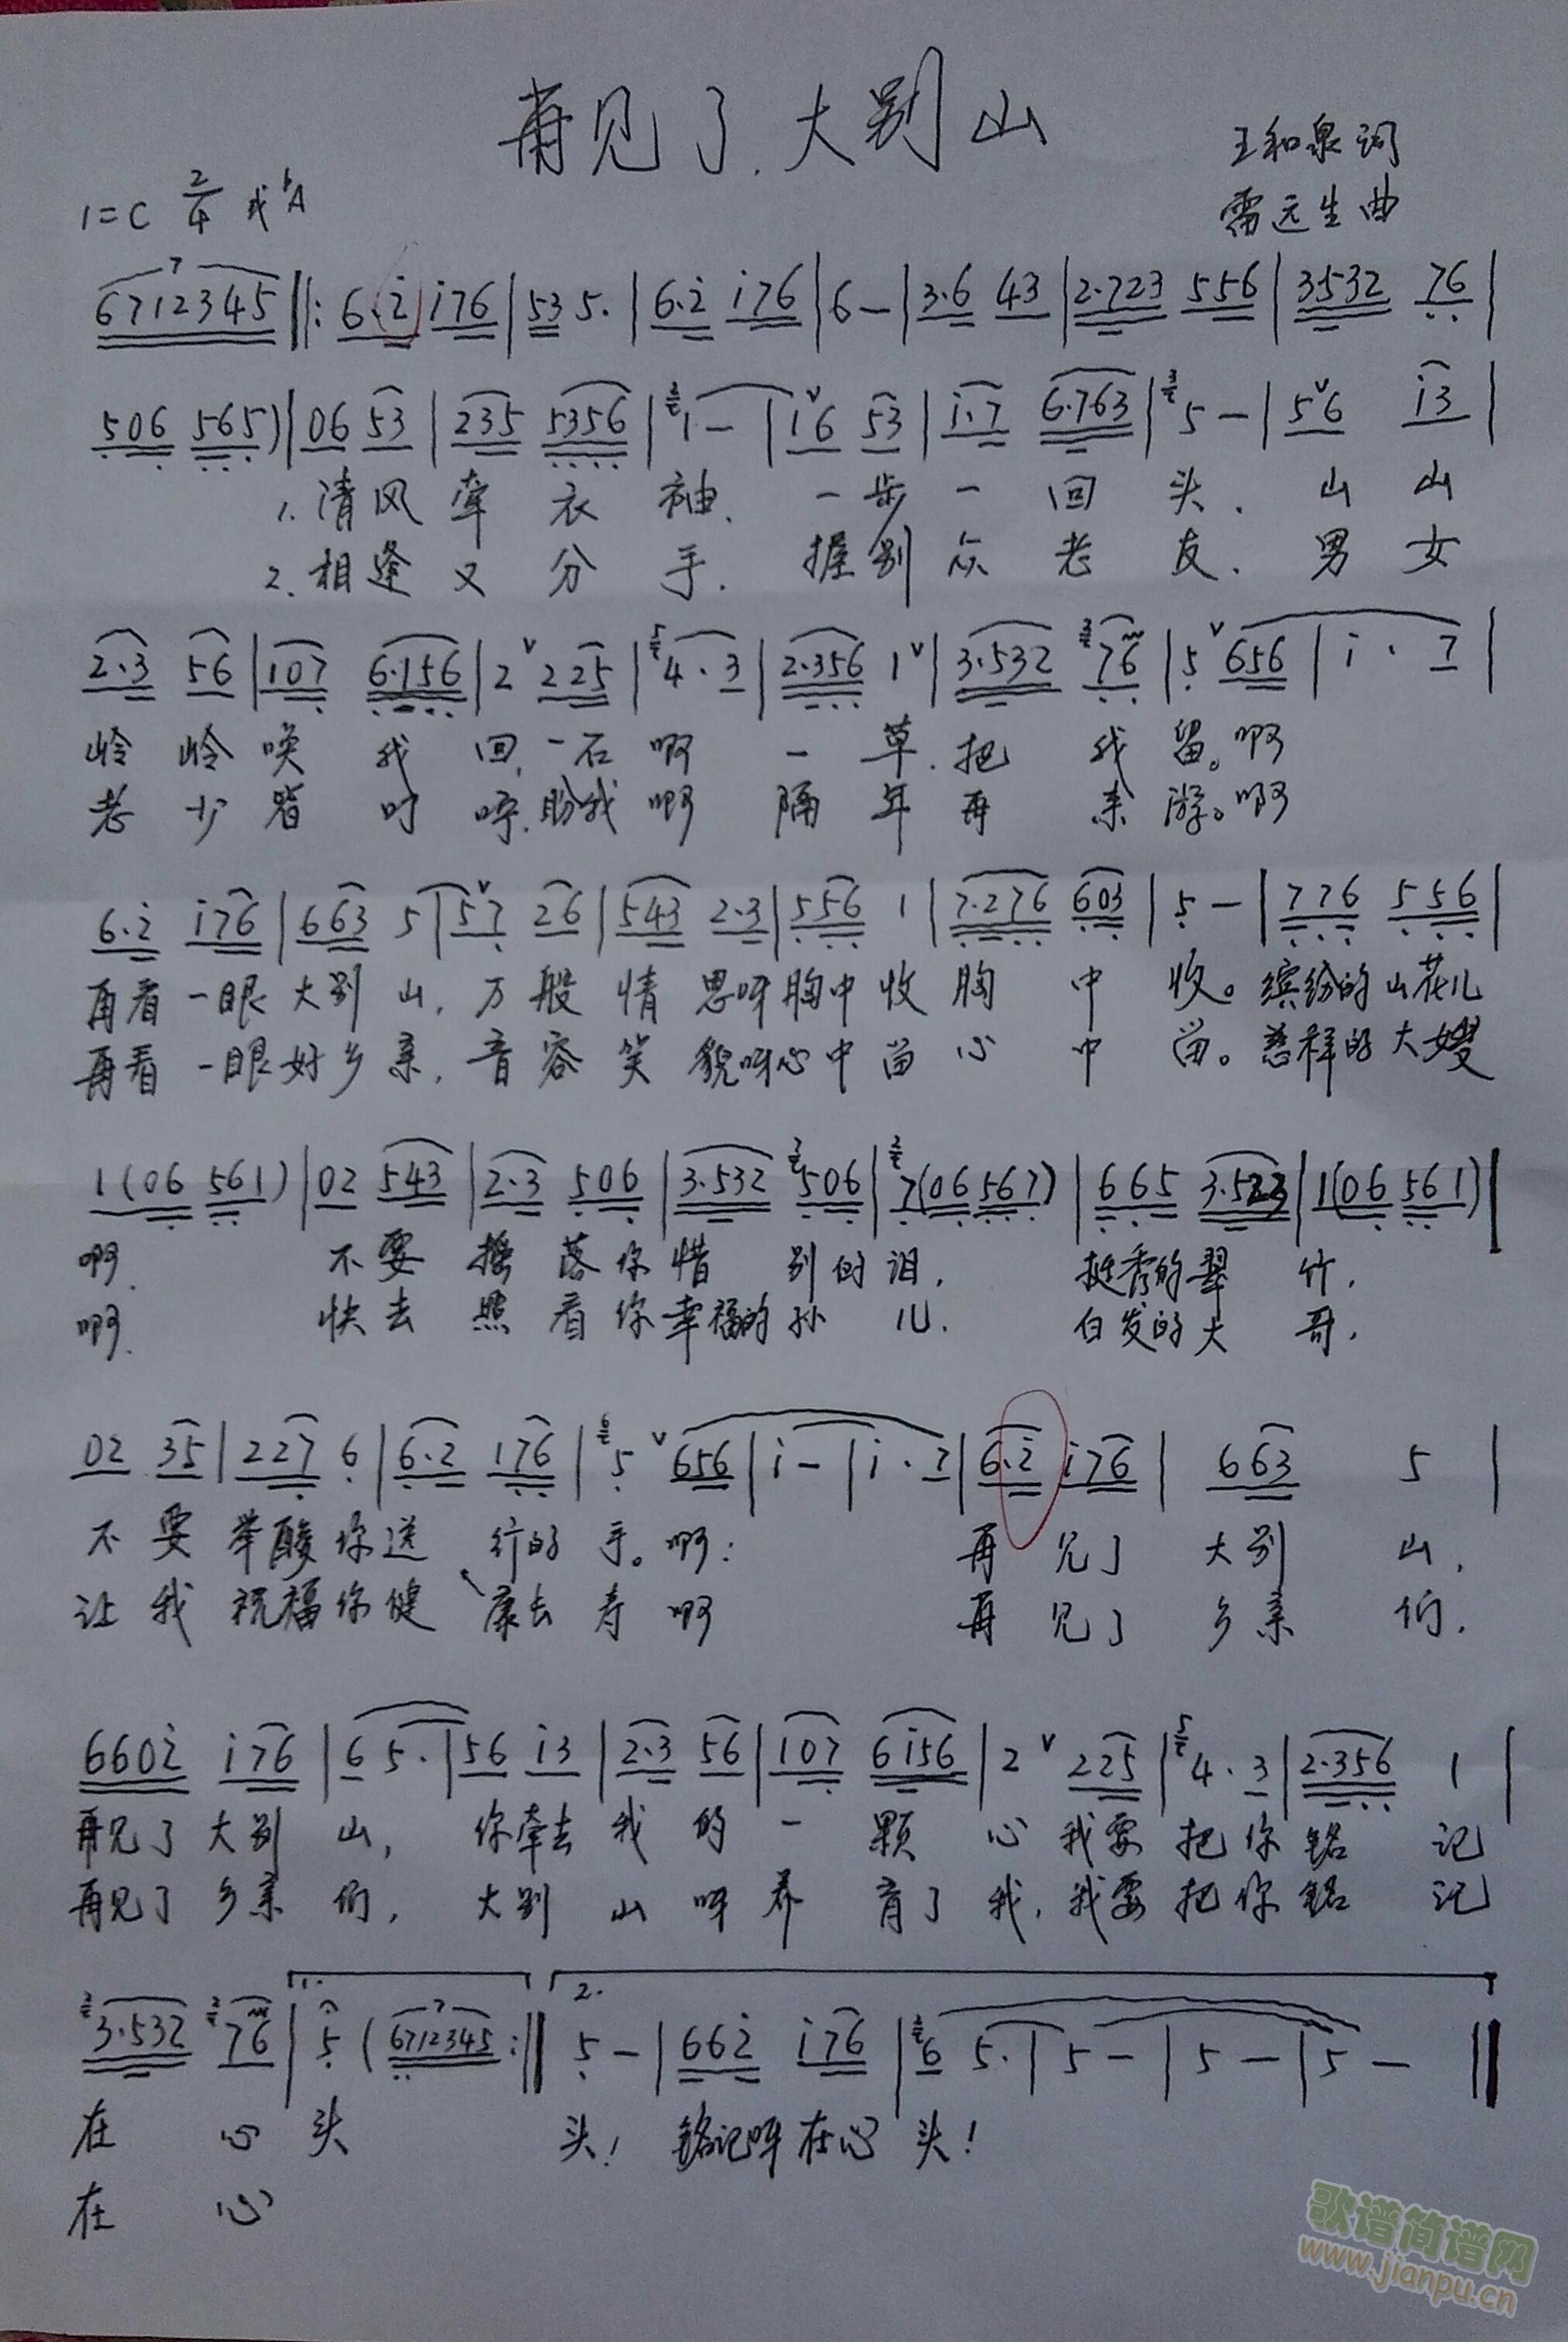 再见了.大别山
王和泉词
1=C 2/4 或 ♭A
雷远生曲
6712345 ‖: 6·i i76 | 53 5· | 6·i i76 | 6 — | 3·6 43 | 2·723 556 | 3532 76 |
506 565) | 06 53 | 235 5356 | 1 — | i 6 53 | i·7 6·763 | 5 — | 5 6 i3 |
1. 清风牵衣袖、一步一回头、山山
2. 相逢又分手. 握别众老友. 男女
2·3 56 | 107 6·156 | 2 225 | 4·3 | 2·356 1 | 3·532 76 | 5 656 | i · 7 |
岭岭唤我回,一石啊一草.把我留。啊
老少皆叮咛.盼我啊隔年再来游。啊
6·i i76 | 663 5 | 57 26 | 543 2·3 | 556 1 | 7·276 603 | 5 — | 776 556 |
再看一眼大别山,万般情思呀胸中收胸中收。缤纷的山花儿
再看一眼好乡亲,音容笑貌呀心中留心中留。慈祥的大嫂
1(06 561) | 02 543 | 2·3 506 | 3·532 506 | 7(06 567) | 665 3·523 | 1(06 561) |
啊. 不要摇落你惜别的泪, 挺秀的翠竹,
啊. 快去照看你幸福的孙儿. 白发的大哥,
02 35 | 227 6 | 6·2 176 | 5 656 | i — | i · 7 | 6·i i76 | 663 5 |
不要举酸你送行的手。啊: 再见了大别山,
让我祝福你健康去寿啊 再见了乡亲们,
660i i76 | 6 5· | 56 i3 | 2·3 56 | 107 6i56 | 2 225 | 4·3 | 2·356 1 |
再见了大别山, 你牵去我的一颗心我要把你铭记
再见了乡亲们, 大别山呀养育了我,我要把你铭记
1. 2.
3·532 76 | 5 (6712345 :‖ 5 — | 66i i76 | 6 5· | 5 — | 5 — | 5 — ‖
在心头 头! 铭记呀在心头!
在心
歌谱简谱网
www.jianpu.cn